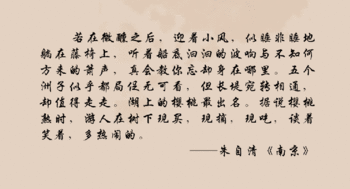 若在微醺之后，迎着小风，似睡非睡地
躺在藤椅上，听着船底汩汩的波响与不知何
方来的箫声，真会教你忘却身在哪里。五个
洲子似乎都局促无可看，但长堤宛转相通，
却值得走走。湖上的樱桃最出名。据说樱桃
熟时，游人在树下现买，现摘，现吃，谈着
笑着，多热闹的。
——朱自清《南京》